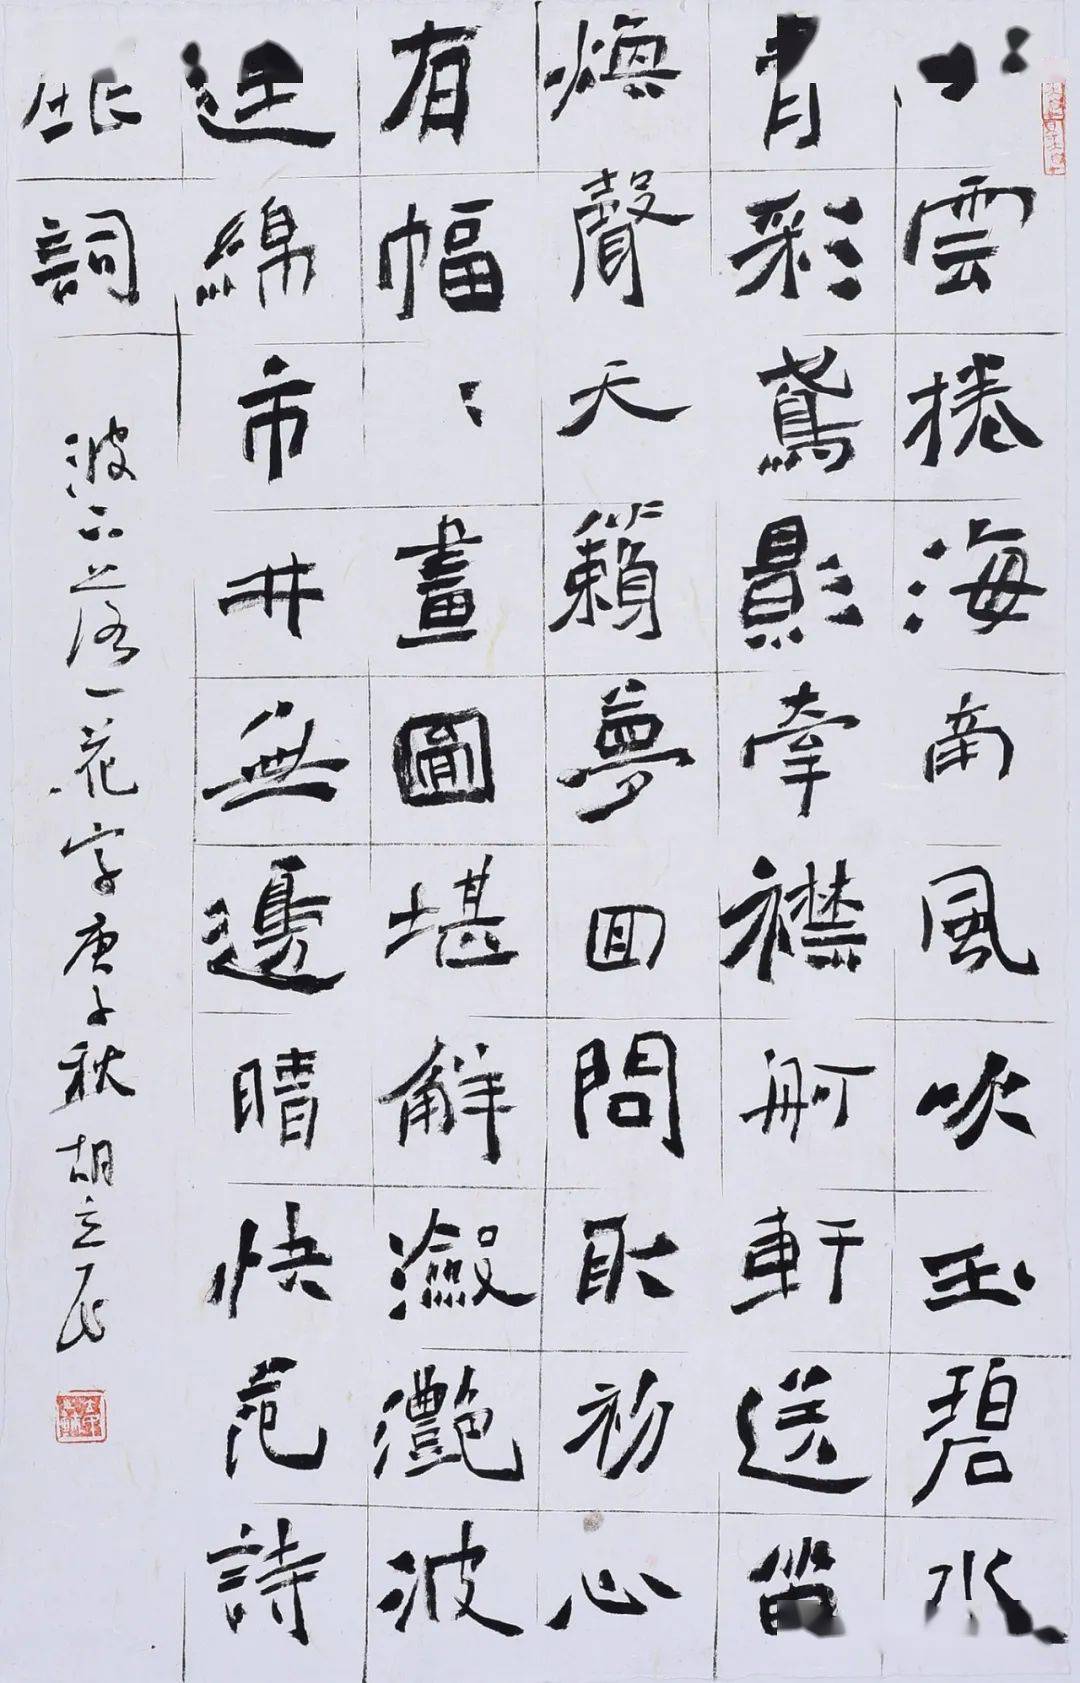 雲捲海南風吹玉碧水
青彩鳶影牽襟舸軒送笛
煥聲天籟夢回問取初心
有幅〻畫圖堪解瀲灩波
連綿市井無邊晴快意詩
詞
波下落一花字庚子秋胡立民